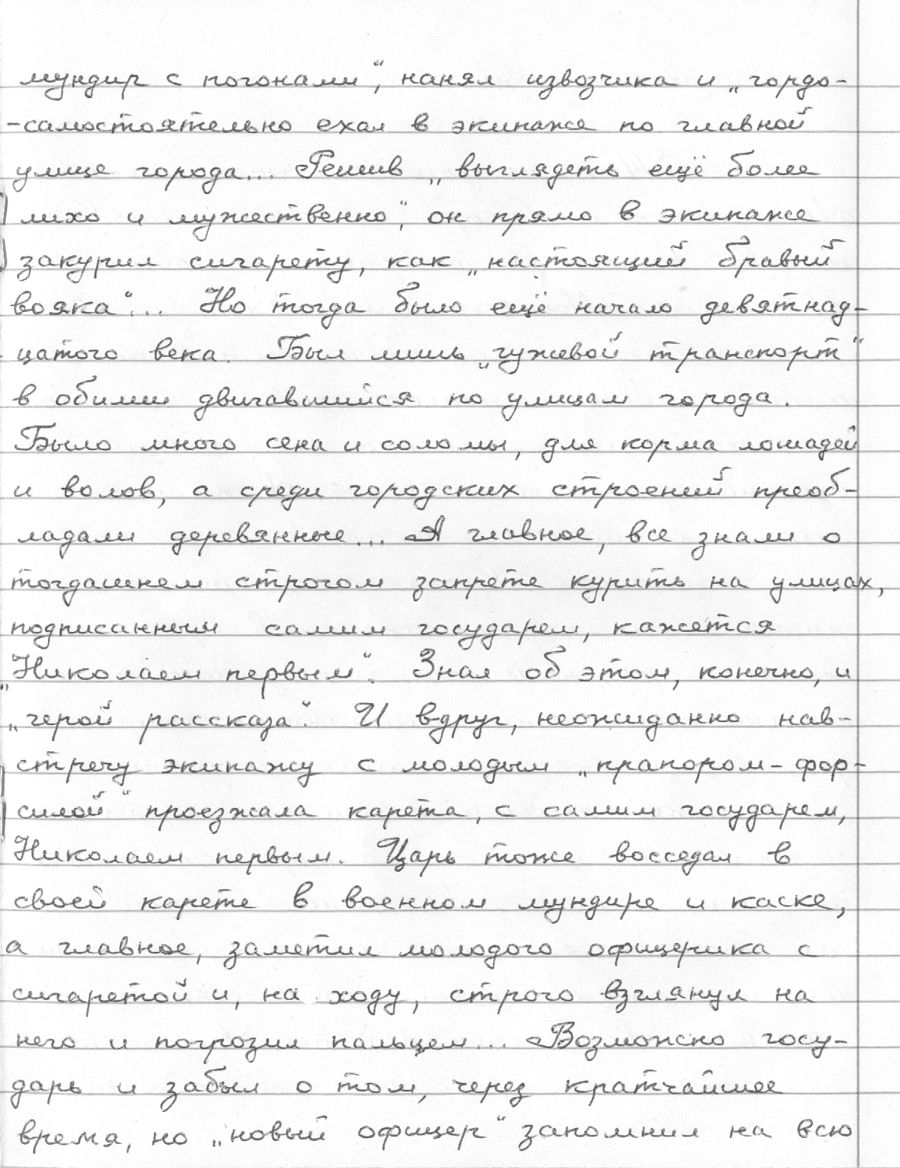 мундир с погонами", нанял извозчика и „гордо-
-самостоятельно ехал в экипаже по главной
улице города... Решив „выглядеть ещё более
лихо и мужественно", он прямо в экипаже
закурил сигарету, как „настоящий бравый
вояка"... Но тогда было ещё начало девятнад-
цатого века. Был лишь „гужевой транспорт"
в обилии двигавшийся по улицам города.
Было много сена и соломы, для корма лошадей
и волов, а среди городских строений преоб-
ладали деревянные... А главное, все знали о
тогдашнем строгом запрете курить на улицах,
подписанным самим государем, кажется
„Николаем первым". Знал об этом, конечно, и
„герой рассказа". И вдруг, неожиданно нав-
стречу экипажу с молодым „прапором-фор-
силой" проезжала карета, с самим государем,
Николаем первым. Царь тоже восседал в
своей карете в военном мундире и каске,
а главное, заметил молодого офицерика с
сигаретой и, на ходу, строго взглянул на
него и погрозил пальцем... Возможно госу-
дарь и забыл о том, через кратчайшее
время, но „новый офицер" запомнил на всю